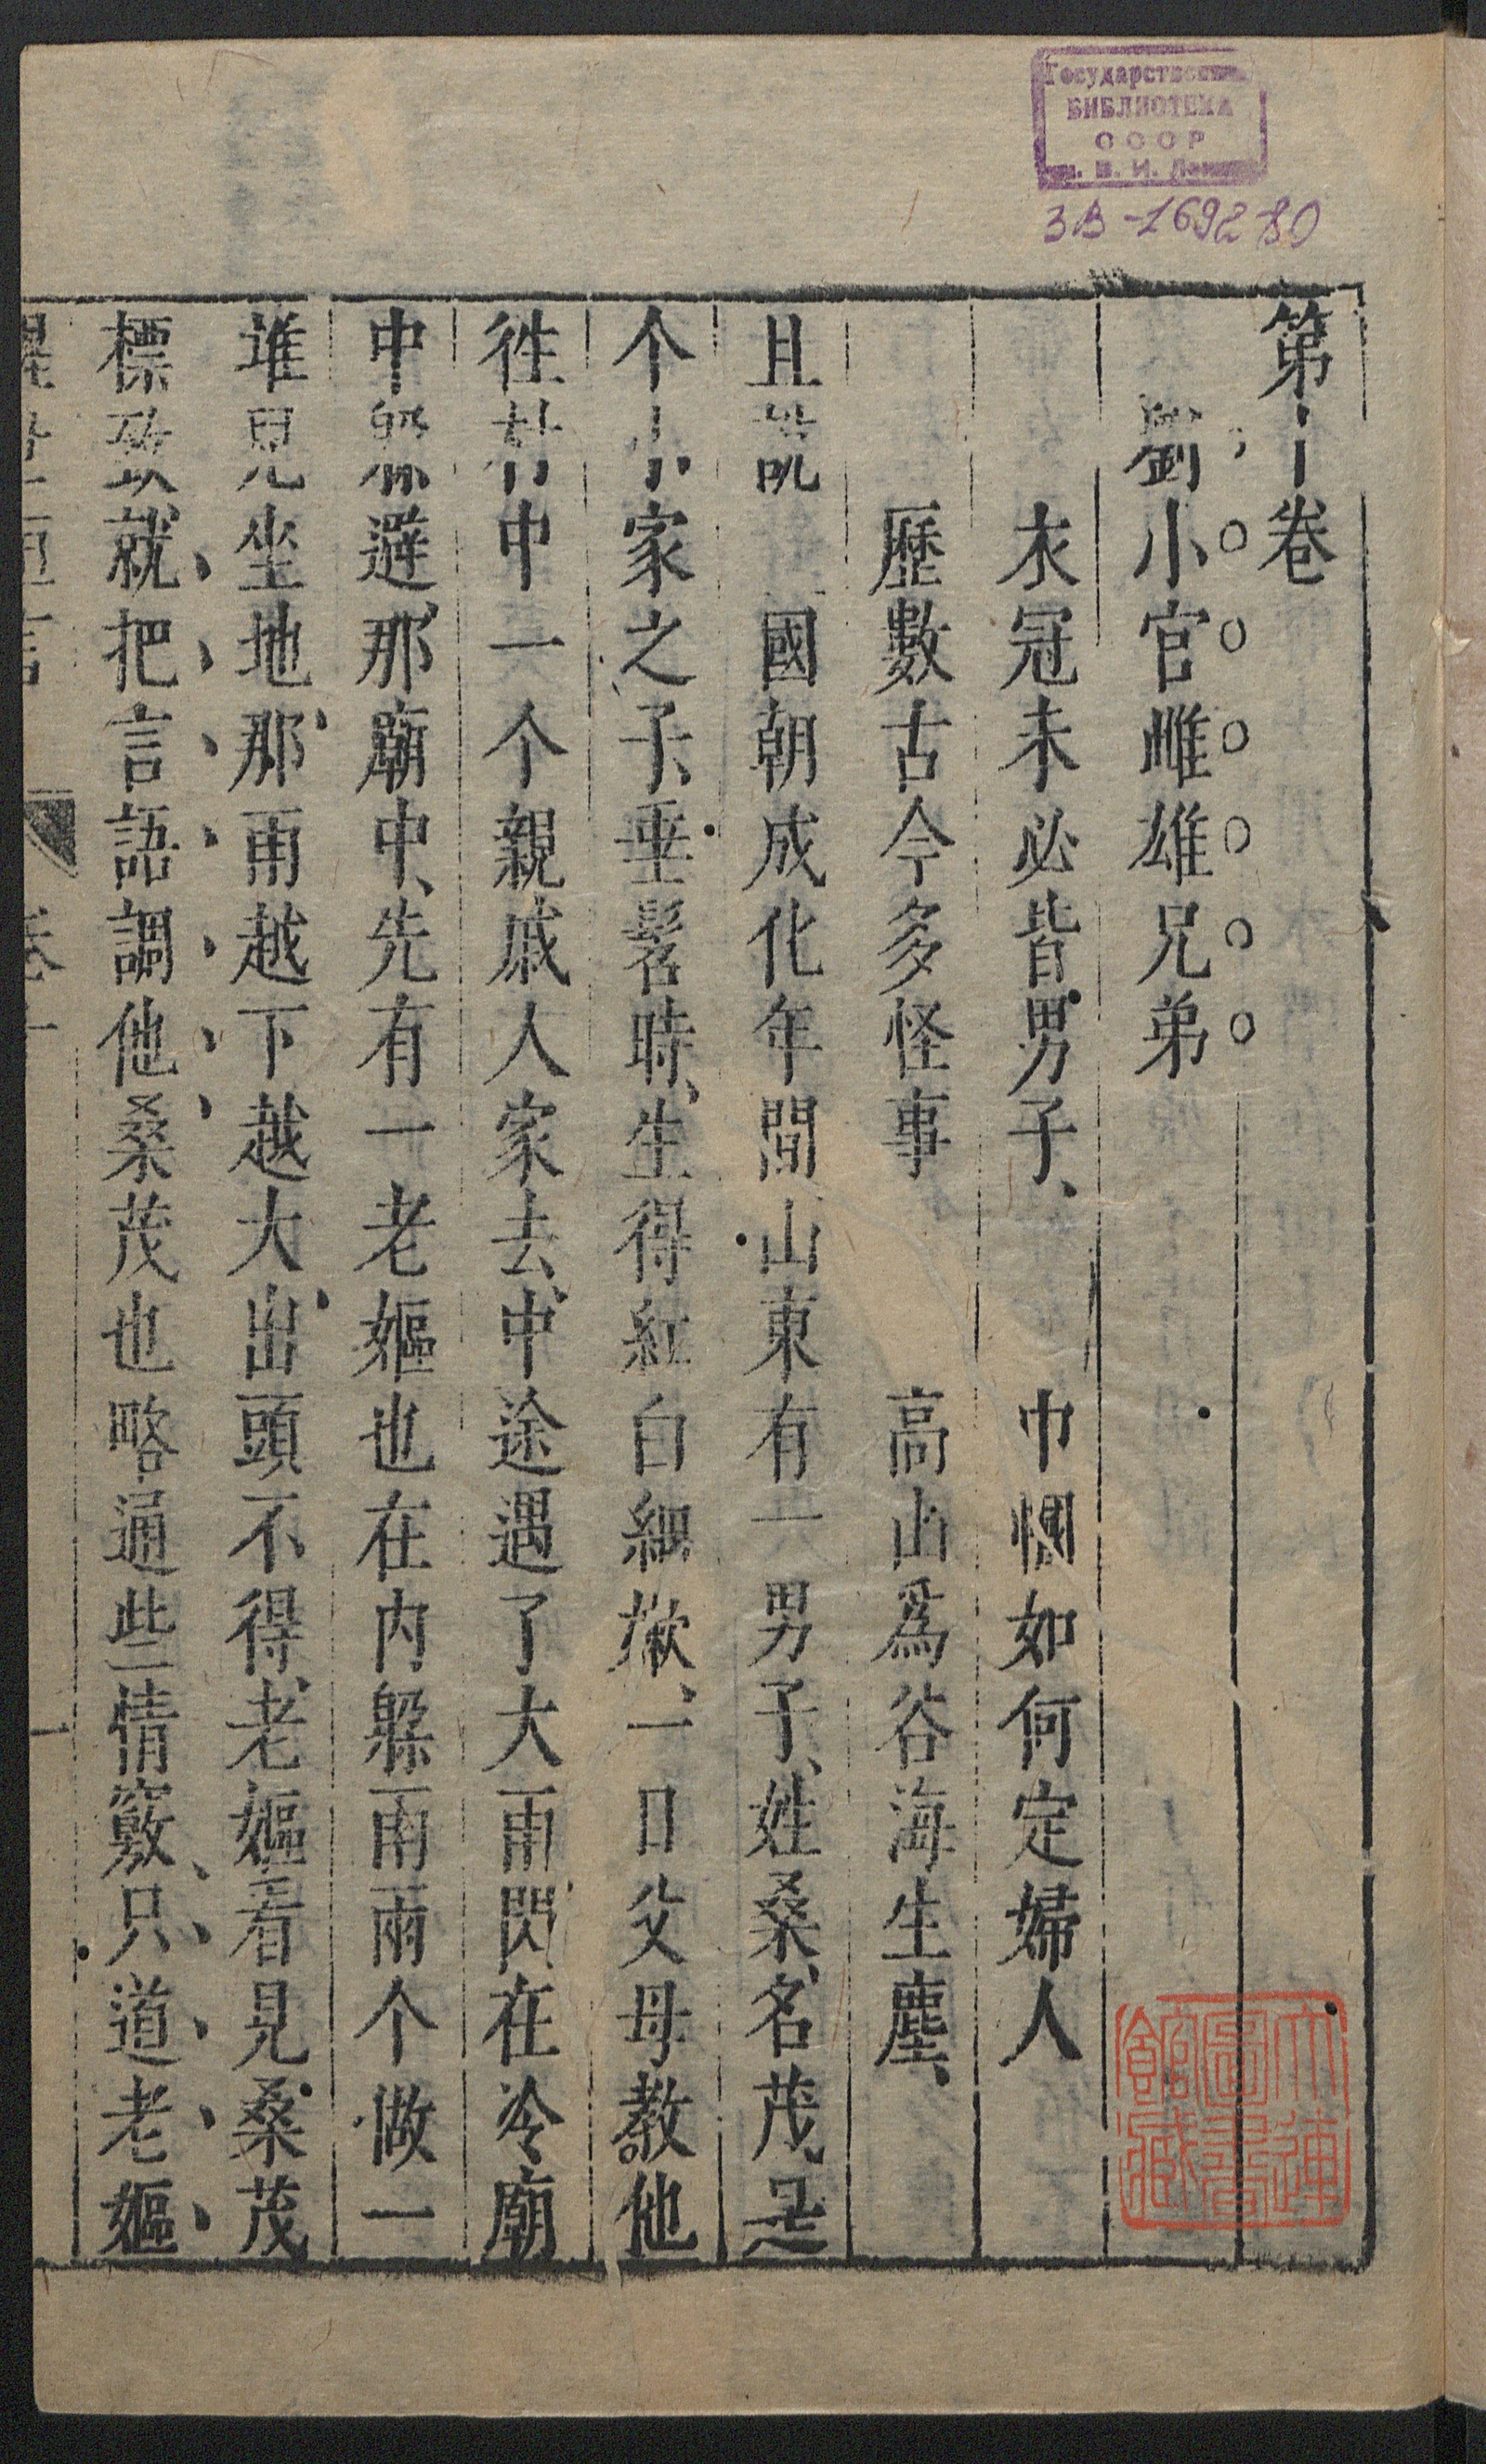 Государственная
БИБЛИОТЕКА
СССР
им. В. И. Ленина
3В-1692-80
第十卷
劉小官雌雄兄弟
衣冠未必皆男子、巾幗如何定婦人
歷數古今多怪事高山爲谷海生塵、
且說國朝成化年間山東有一男子、姓桑、名茂、是
个小家之子、垂髫時、生得紅白細嫩、一日父母教他
徃村中一个親戚人家去、中途遇了大雨閃在冷廟
中躲避那廟中、先有一老嫗也在内躲雨兩个做一
堆兒坐地那雨越下越大出頭不得、老嫗看見桑茂
標致就把言語調他、桑茂也略通些情竅、只道老嫗
醒世恒言 卷十 一
大連圖書館藏